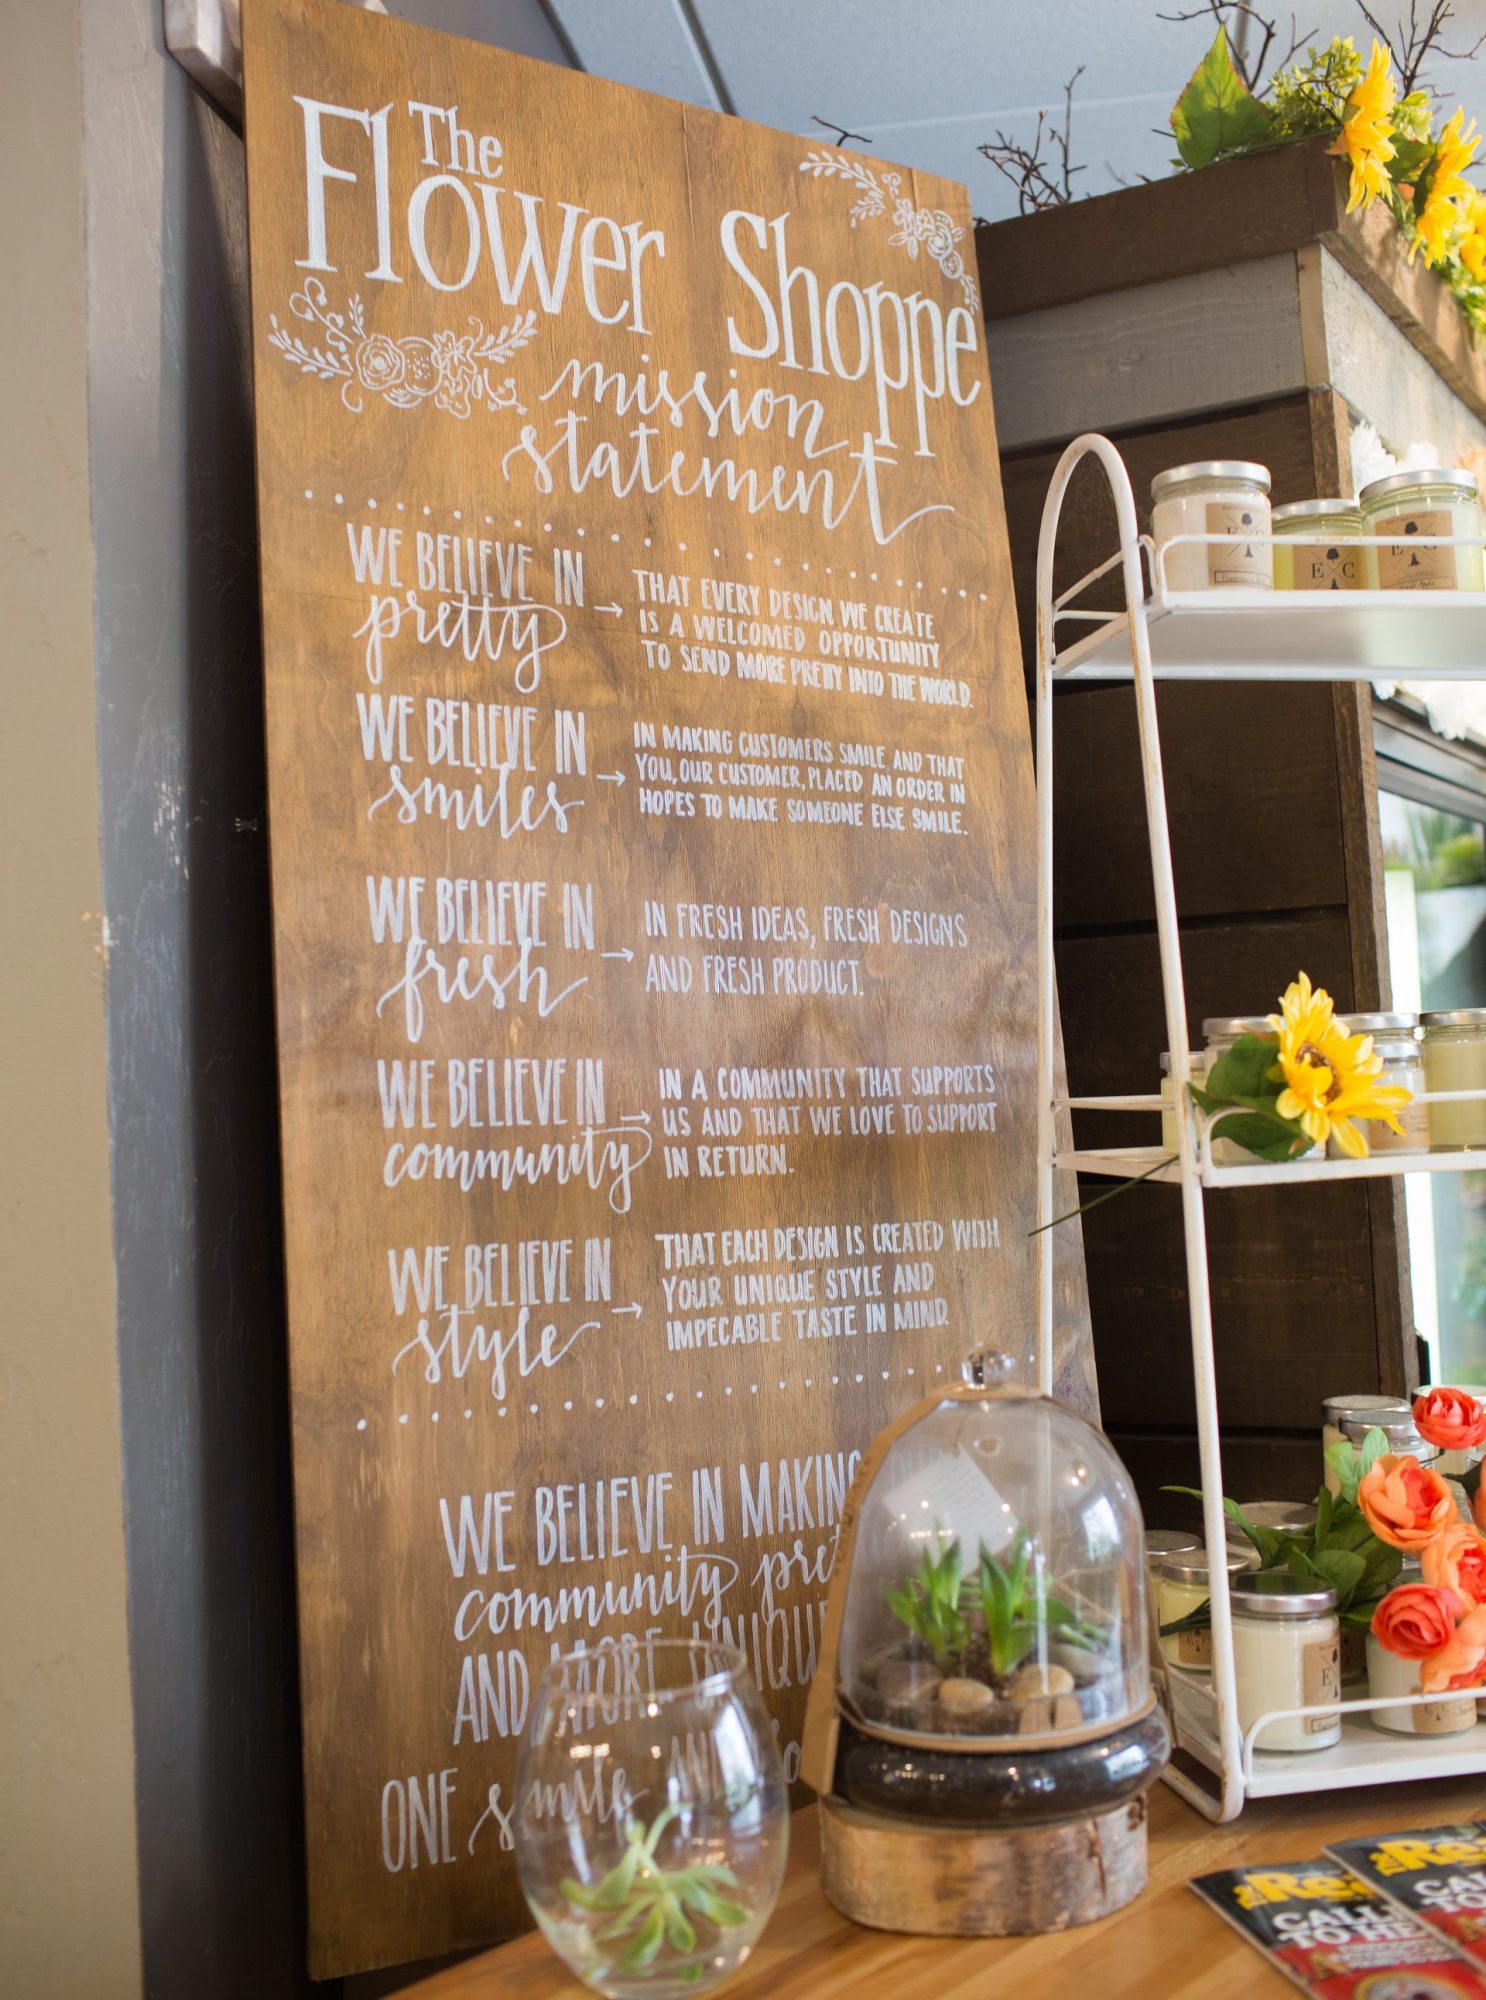 The
Flower Shoppe
mission
statement
WE BELIEVE IN
pretty →
THAT EVERY DESIGN WE CREATE
IS A WELCOMED OPPORTUNITY
TO SEND MORE PRETTY INTO THE WORLD.
WE BELIEVE IN
smiles →
IN MAKING CUSTOMERS SMILE AND THAT
YOU, OUR CUSTOMER, PLACED AN ORDER IN
HOPES TO MAKE SOMEONE ELSE SMILE.
WE BELIEVE IN
fresh →
IN FRESH IDEAS, FRESH DESIGNS
AND FRESH PRODUCT.
WE BELIEVE IN
community →
IN A COMMUNITY THAT SUPPORTS
US AND THAT WE LOVE TO SUPPORT
IN RETURN.
WE BELIEVE IN
style →
THAT EACH DESIGN IS CREATED WITH
YOUR UNIQUE STYLE AND
IMPECCABLE TASTE IN MIND.
WE BELIEVE IN MAKING
community
AND MORE UNIQUE
ONE smile AND
E C
E C
E C
E C
CALL
TO HE
CA
TO